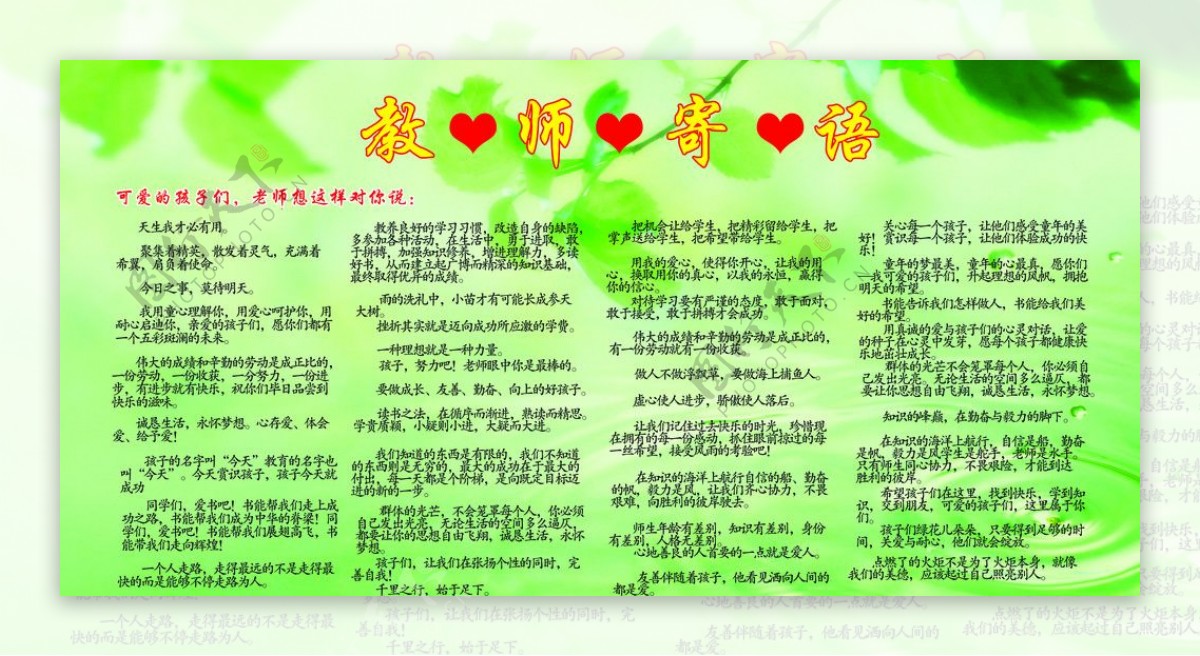 教师寄语
可爱的孩子们，老师想这样对你说：
天生我才必有用。
聚集着精英，散发着灵气，充满着
希翼，肩负着使命。
今日之事，莫待明天。
我用童心理解你，用爱心呵护你，用
耐心启迪你，亲爱的孩子们，愿你们都有
一个五彩斑斓的未来。
伟大的成绩和辛勤的劳动是成正比的，
一份劳动，一份收获，一分努力，一份进
步，有进步就有快乐，祝你们毕日品尝到
快乐的滋味。
诚恳生活，永怀梦想。心存爱、体会
爱、给予爱！
孩子的名字叫“今天”教育的名字也
叫“今天”。今天赏识孩子，孩子今天就
成功
同学们，爱书吧！书能帮我们走上成
功之路，书能帮我们成为中华的脊梁！同
学们，爱书吧！书能帮我们展翅高飞，书
能带我们走向辉煌！
一个人走路，走得最远的不是走得最
快的而是能够不停走路为人。
教养良好的学习习惯，改造自身的缺陷，
多参加各种活动，在生活中，勇于进取，敢
于拼搏，加强知识修养，增进理解力，多读
好书，从而建立起广博而精深的知识基础，
最终取得优异的成绩。
雨的洗礼中，小苗才有可能长成参天
大树。
挫折其实就是迈向成功所应激的学费。
一种理想就是一种力量。
孩子，努力吧！老师眼中你是最棒的。
要做成长、友善、勤奋、向上的好孩子。
读书之法，在循序而渐进，熟读而精思。
学贵质颖，小疑则小进，大疑而大进。
我们知道的东西是有限的，我们不知道
的东西则是无穷的，最大的成功在于最大的
付出，每一天都是个阶梯，是向既定目标迈
进的新的一步。
群体的光芒，不会笼罩每个人，你必须
自己发出光亮，无论生活的空间多么逼仄，
都要让你的思想自由飞翔，诚恳生活，永怀
梦想。
孩子们，让我们在张扬个性的同时，完
善自我！
千里之行，始于足下。
把机会让给学生，把精彩留给学生，把
掌声送给学生，把希望带给学生。
用我的爱心，使得你开心，让我的用
心，换取用你的真心，以我的永恒，赢得
你的信心。
对待学习要有严谨的态度，敢于面对，
敢于接受，敢于拼搏才会成功。
伟大的成绩和辛勤的劳动是成正比的，
有一份劳动就有一份收获。
做人不做浮飘草，要做海上捕鱼人。
虚心使人进步，骄傲使人落后。
让我们记住过去快乐的时光，珍惜现
在拥有的每一份感动，抓住眼前掠过的每
一丝希望，接受风雨的考验吧！
在知识的海洋上航行自信的船、勤奋
的帆，毅力是风，让我们齐心协力，不畏
艰难，向胜利的彼岸驶去。
师生年龄有差别，知识有差别，身份
有差别，人格无差别。
心地善良的人首要的一点就是爱人。
友善伴随着孩子，他看见洒向人间的
都是爱。
关心每一个孩子，让他们感受童年的美
好！赏识每一个孩子，让他们体验成功的快
乐！
童年的梦最美，童年的心最真，愿你们
—我可爱的孩子们，升起理想的风帆，拥抱
明天的希望。
书能告诉我们怎样做人，书能给我们美
好的希望。
用真诚的爱与孩子们的心灵对话，让爱
的种子在心灵中发芽，愿每个孩子都健康快
乐地茁壮成长。
群体的光芒不会笼罩每个人，你必须自
己发出光亮，无论生活的空间多么逼仄，都
要让你思想自由飞翔，诚恳生活，永怀梦想。
知识的峰巅，在勤奋与毅力的脚下。
在知识的海洋上航行，自信是船，勤奋
是帆，毅力是风学生是舵手，老师是水手。
只有师生同心协力，不畏艰险，才能到达
胜利的彼岸。
希望孩子们在这里，找到快乐，学到知
识，交到朋友，可爱的孩子们，这里属于你
们。
孩子们绿花儿朵朵，只要得到足够的时
间，关爱与耐心，他们就会绽放。
点燃了的火炬不是为了火炬本身，就像
我们的美德，应该超过自己照亮别人。